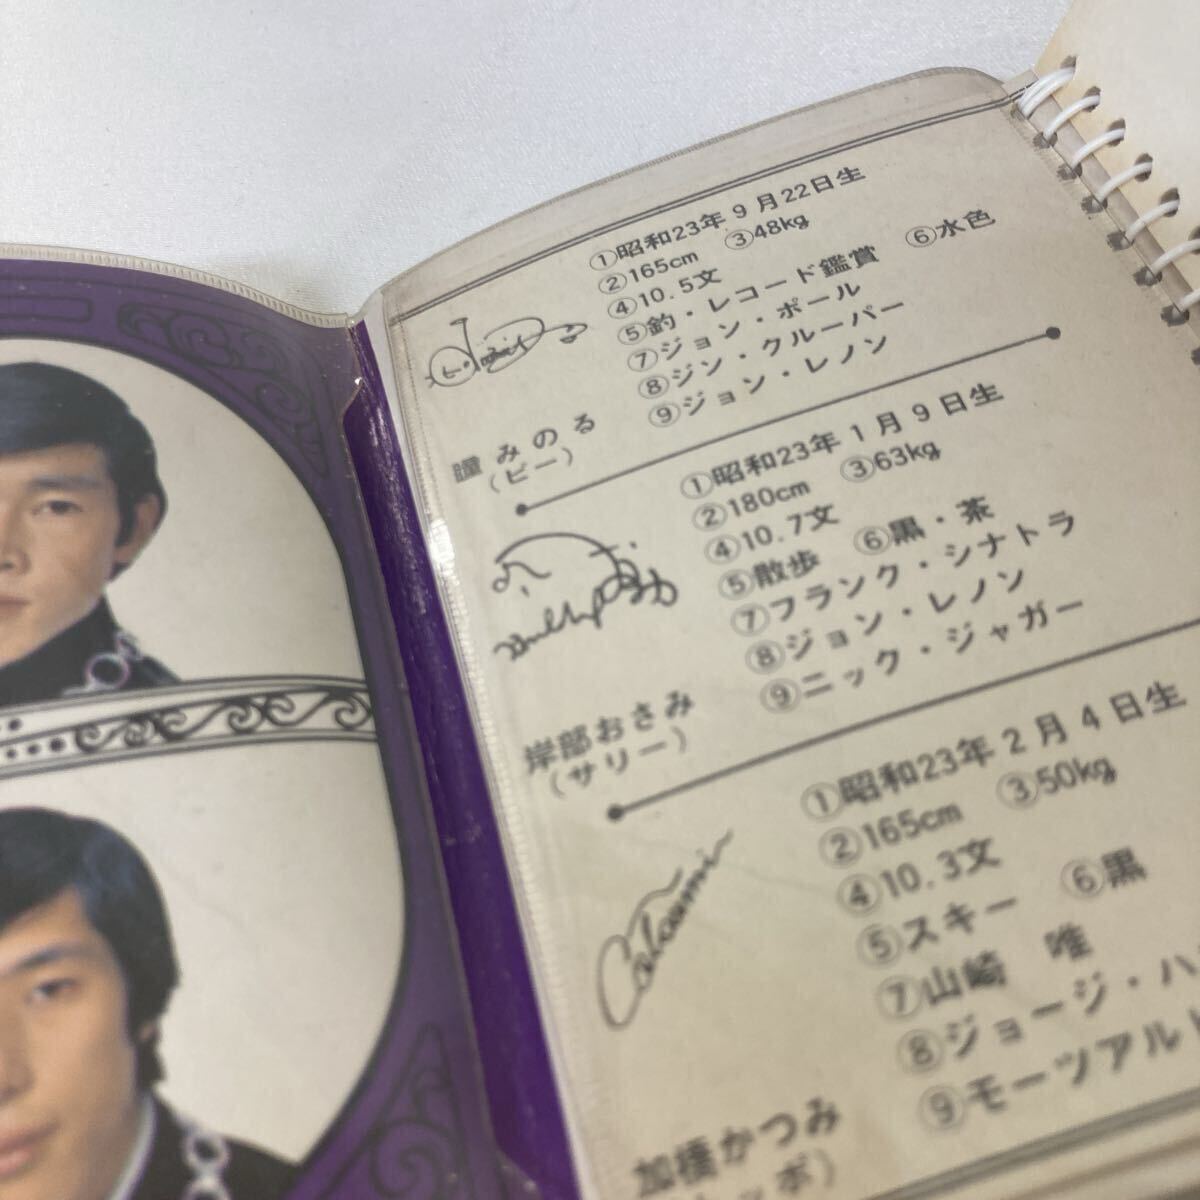 ①昭和23年9月22日生
②165cm ③48kg
④10.5文
⑤釣・レコード鑑賞 ⑥水色
⑦ジョン・ポール
⑧ジン・クルーパー
⑨ジョン・レノン
瞳みのる
(ピー)
①昭和23年1月9日生
②180cm ③63kg
④10.7文
⑤散歩 ⑥黒・茶
⑦フランク・シナトラ
⑧ジョン・レノン
⑨ニック・ジャガー
岸部おさみ
(サリー)
①昭和23年2月4日生
②165cm ③50kg
④10.3文
⑤スキー ⑥黒
⑦山崎 唯
⑧ジョージ・ハ
⑨モーツアルト
加橋かつみ
ッポ)